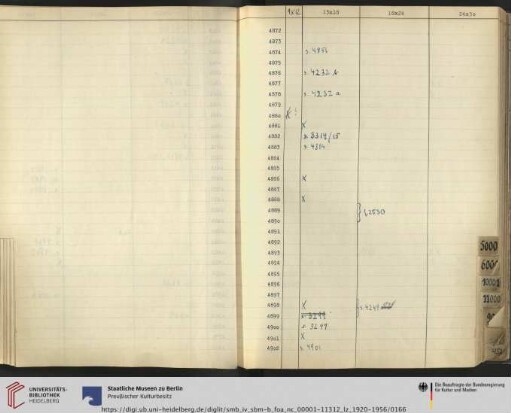 9x12 13x18 18x24 24x30
4872
4873
4874
4875
4876 s. 4232 b
4877
4878 s. 4232 a
4879
4880
4881 X
4882 s. 8319/18
4883
4884
4885
4886 X
4887
4888 X
4889
4890
4891
4892
4893
4894
4895
4896
4897
4898 X
4899 s. 3299
4900 s. 3299
4901 X
4902 s. 4901
5000
6000
10000
11000
UNIVERSITÄTS-
BIBLIOTHEK
HEIDELBERG
Staatliche Museen zu Berlin
Preußischer Kulturbesitz
Die Beauftragte der Bundesregierung
für Kultur und Medien
https://digi.ub.uni-heidelberg.de/diglit/smb_iv_sbm-b_foa_nc_00001-11312_lz_1920-1956/0166